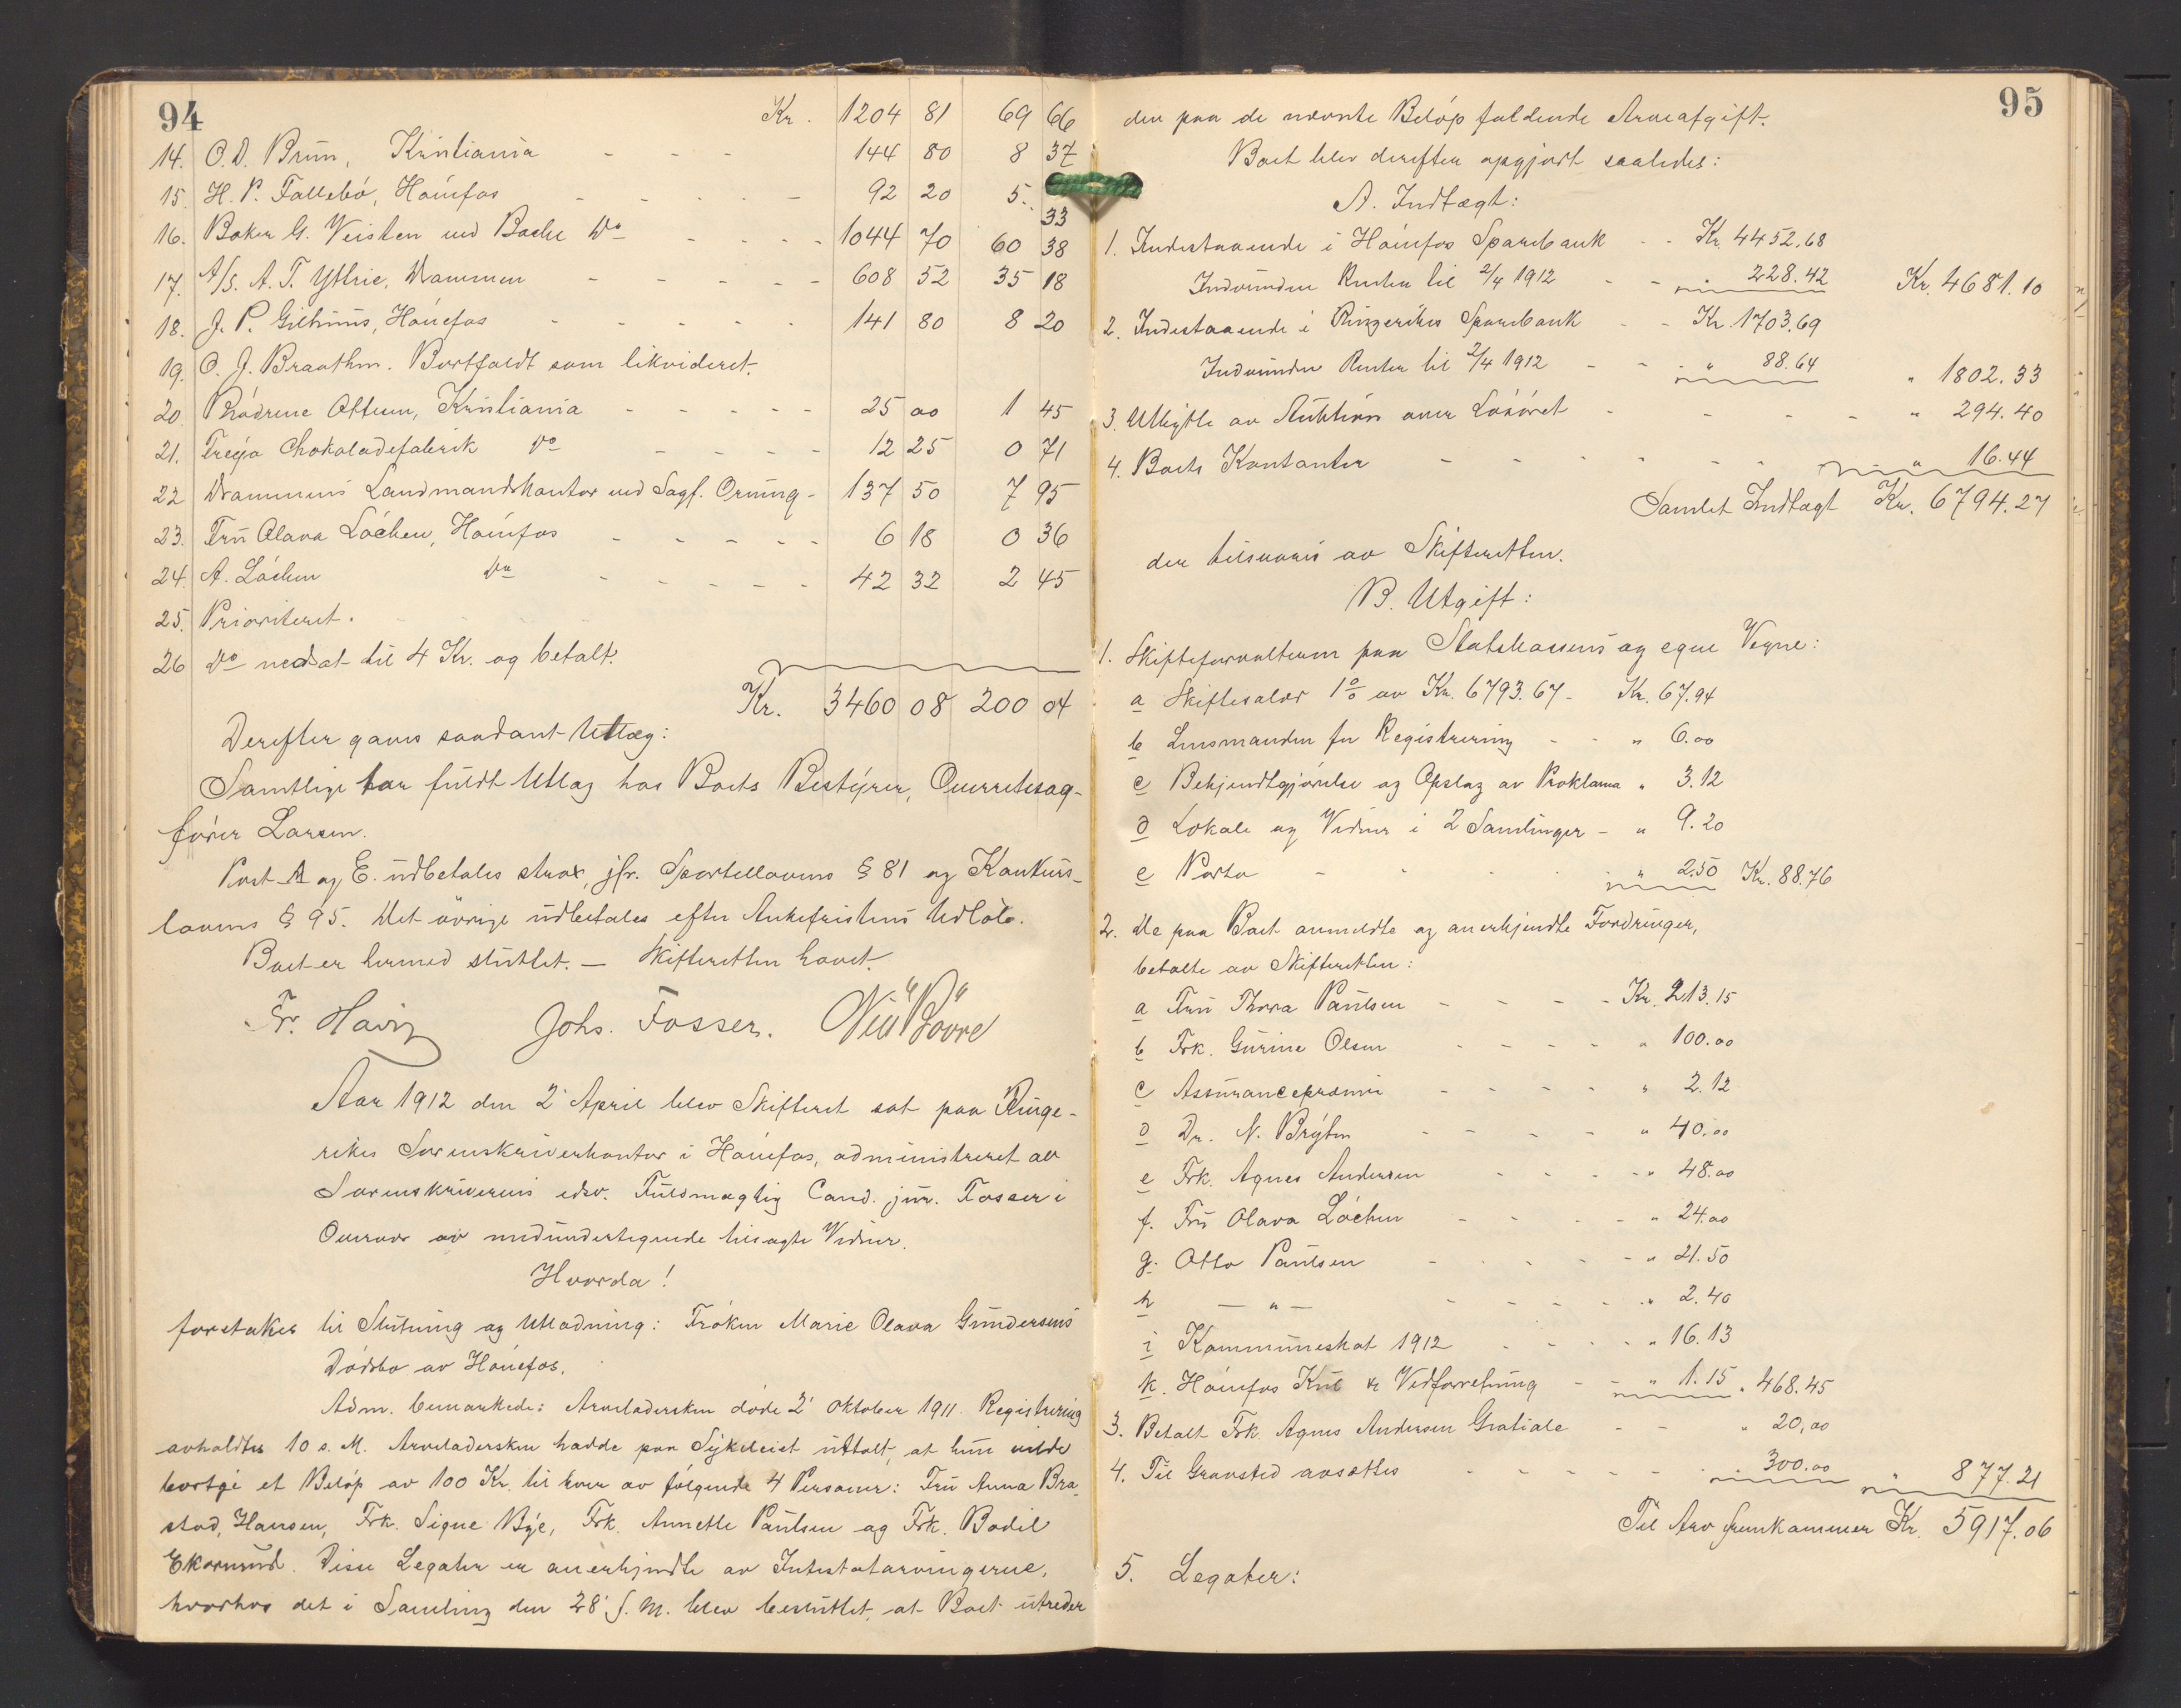 94
Kr. 1204 81 69 66
14. O. D. Bruun, Kristiania - - - 144 80 8 37
15. H. P. Follebö, Hönefos - - - - - 92 20 5. 33
16. Baker G. Veisten ved Bache Do - - - - 1044 70 60 38
17. A/S. A. T. Yttrie, Drammen - - - - - 608 52 35 18
18. J. P. Gilhuus, Hönefos - - - - - 141 80 8 20
19. O. J. Braathen. Bortfaldt som likvideret.
20. Brödrene Ottesen, Kristiania - - - - - 25 00 1 45
21. Freya Chokoladefabrik Do - - - - 12 25 0 71
22 Drammens Landmandskontor ved Sagf. Orning - 137 50 7 95
23. Fru Olava Löchen, Hönefos - - - - - 6 18 0 36
24. A. Löchen Do - - - - - 42 32 2 45
25. Prioriteret.
26 Do nedsat til 4 Kr. og betalt.
Kr. 3460 08 200 04
Derefter gaves saadant Utlæg:
Samtlige har fuldt Utlæg hos Boets Bestyrer, Overretssag-
förer Larsen.
Post A og E. udbetales strax, jfr. Sportellovens § 81 og Konkurs-
lovens § 95. Det övrige udbetales efter Ankefristens Udlöb.
Boet er hermed sluttet. — Skifteretten hævet.
Fr. Johs. Fosser.
Aar 1912 den 2' April blev Skifteret sat paa Ringe-
rikes Sorenskriverkontor i Hönefos, administreret av
Sorenskriverens edsv. Fuldmægtig Cand. jur. Fosser i
Overvær av medundertegnede tilsagte Vidner.
Hvorda!
foretokes til Slutning og Utlodning: Fröken Marie Olava Gundersens
Dödsbo av Hönefos.
Adm. bemærkede: Arveladersken döde 2' Oktober 1911. Registrering
avholdtes 10 s. M. Arveladersken hadde paa Sykeleiet uttalt, at hun vilde
bortgi et Belöp av 100 Kr. til hver av fölgende 4 Personer: Fru Anna Bra-
stad, Hansen, Frk. Signe Bye, Frk. Annette Paulsen og Frk. Bodil
Ekornrud. Disse Legater er anerkjendte av Intestatarvingerne,
hvorhos det i Samling den 28' f. M. blev besluttet, at Boet utreder
95
den paa de nævnte Belöp faldende Arveafgift.
Boet blev derefter opgjort saaledes:
A. Indtægt:
1. Indestaaende i Hönefos Sparebank - - Kr. 4452.68
Indvundne Renter til 2/4 1912 - - - 228.42 Kr. 4681.10
2. Indestaaende i Ringerikes Sparebank - - Kr 1703.69
Indvundne Renter til 2/4 1912 - - - " 88.64 " 1802.33
3. Utbytte av Auktion over Lösöret - - - - - " 294.40
4. Boets Kontanter - - - - - - - " 16.44
Samlet Indtægt Kr. 6794.27
der tilsvares av Skifteretten.
B. Utgift:
1. Skifteforvalteren paa Statskassens og egne Vegne:
a Skiftesalær 1% av Kr. 6793.67 - Kr. 67.94
b Lensmanden for Registrering - - " 6.00
c Bekjendtgjörelse og Opslag av Proklama " 3.12
d Lokale og Vidner i 2 Samlinger - " 9.20
e Porto - - - " 2.50 Kr. 88.76
2. De paa Boet anmeldte og anerkjendte Fordringer,
betalte av Skifteretten:
a Fru Thora Paulsen - - - - Kr. 213.15
b Frk. Gurine Olsen - - - - " 100.00
c Assurancepræmie - - - - " 2.12
d Dr. N. Bryhn - - - - " 40.00
e Frk. Agnes Andersen - - - " 48.00
f. Fru Olava Löchen - - - - " 24.00
g. Otto Paulsen - - - - - " 21.50
h — " — - - - - - " 2.40
i Kommuneskat 1912 - - - - " 16.13
k. Hönefos Kul & Vedforretning - - " 1.15 " 468.45
3. Betalt Frk. Agnes Andersen Gratiale - - " 20,00
4. Til Gravsted avsættes - - - - - - 300.00 " 877.21
Til Arv fremkommer Kr. 5917.06
5. Legater: